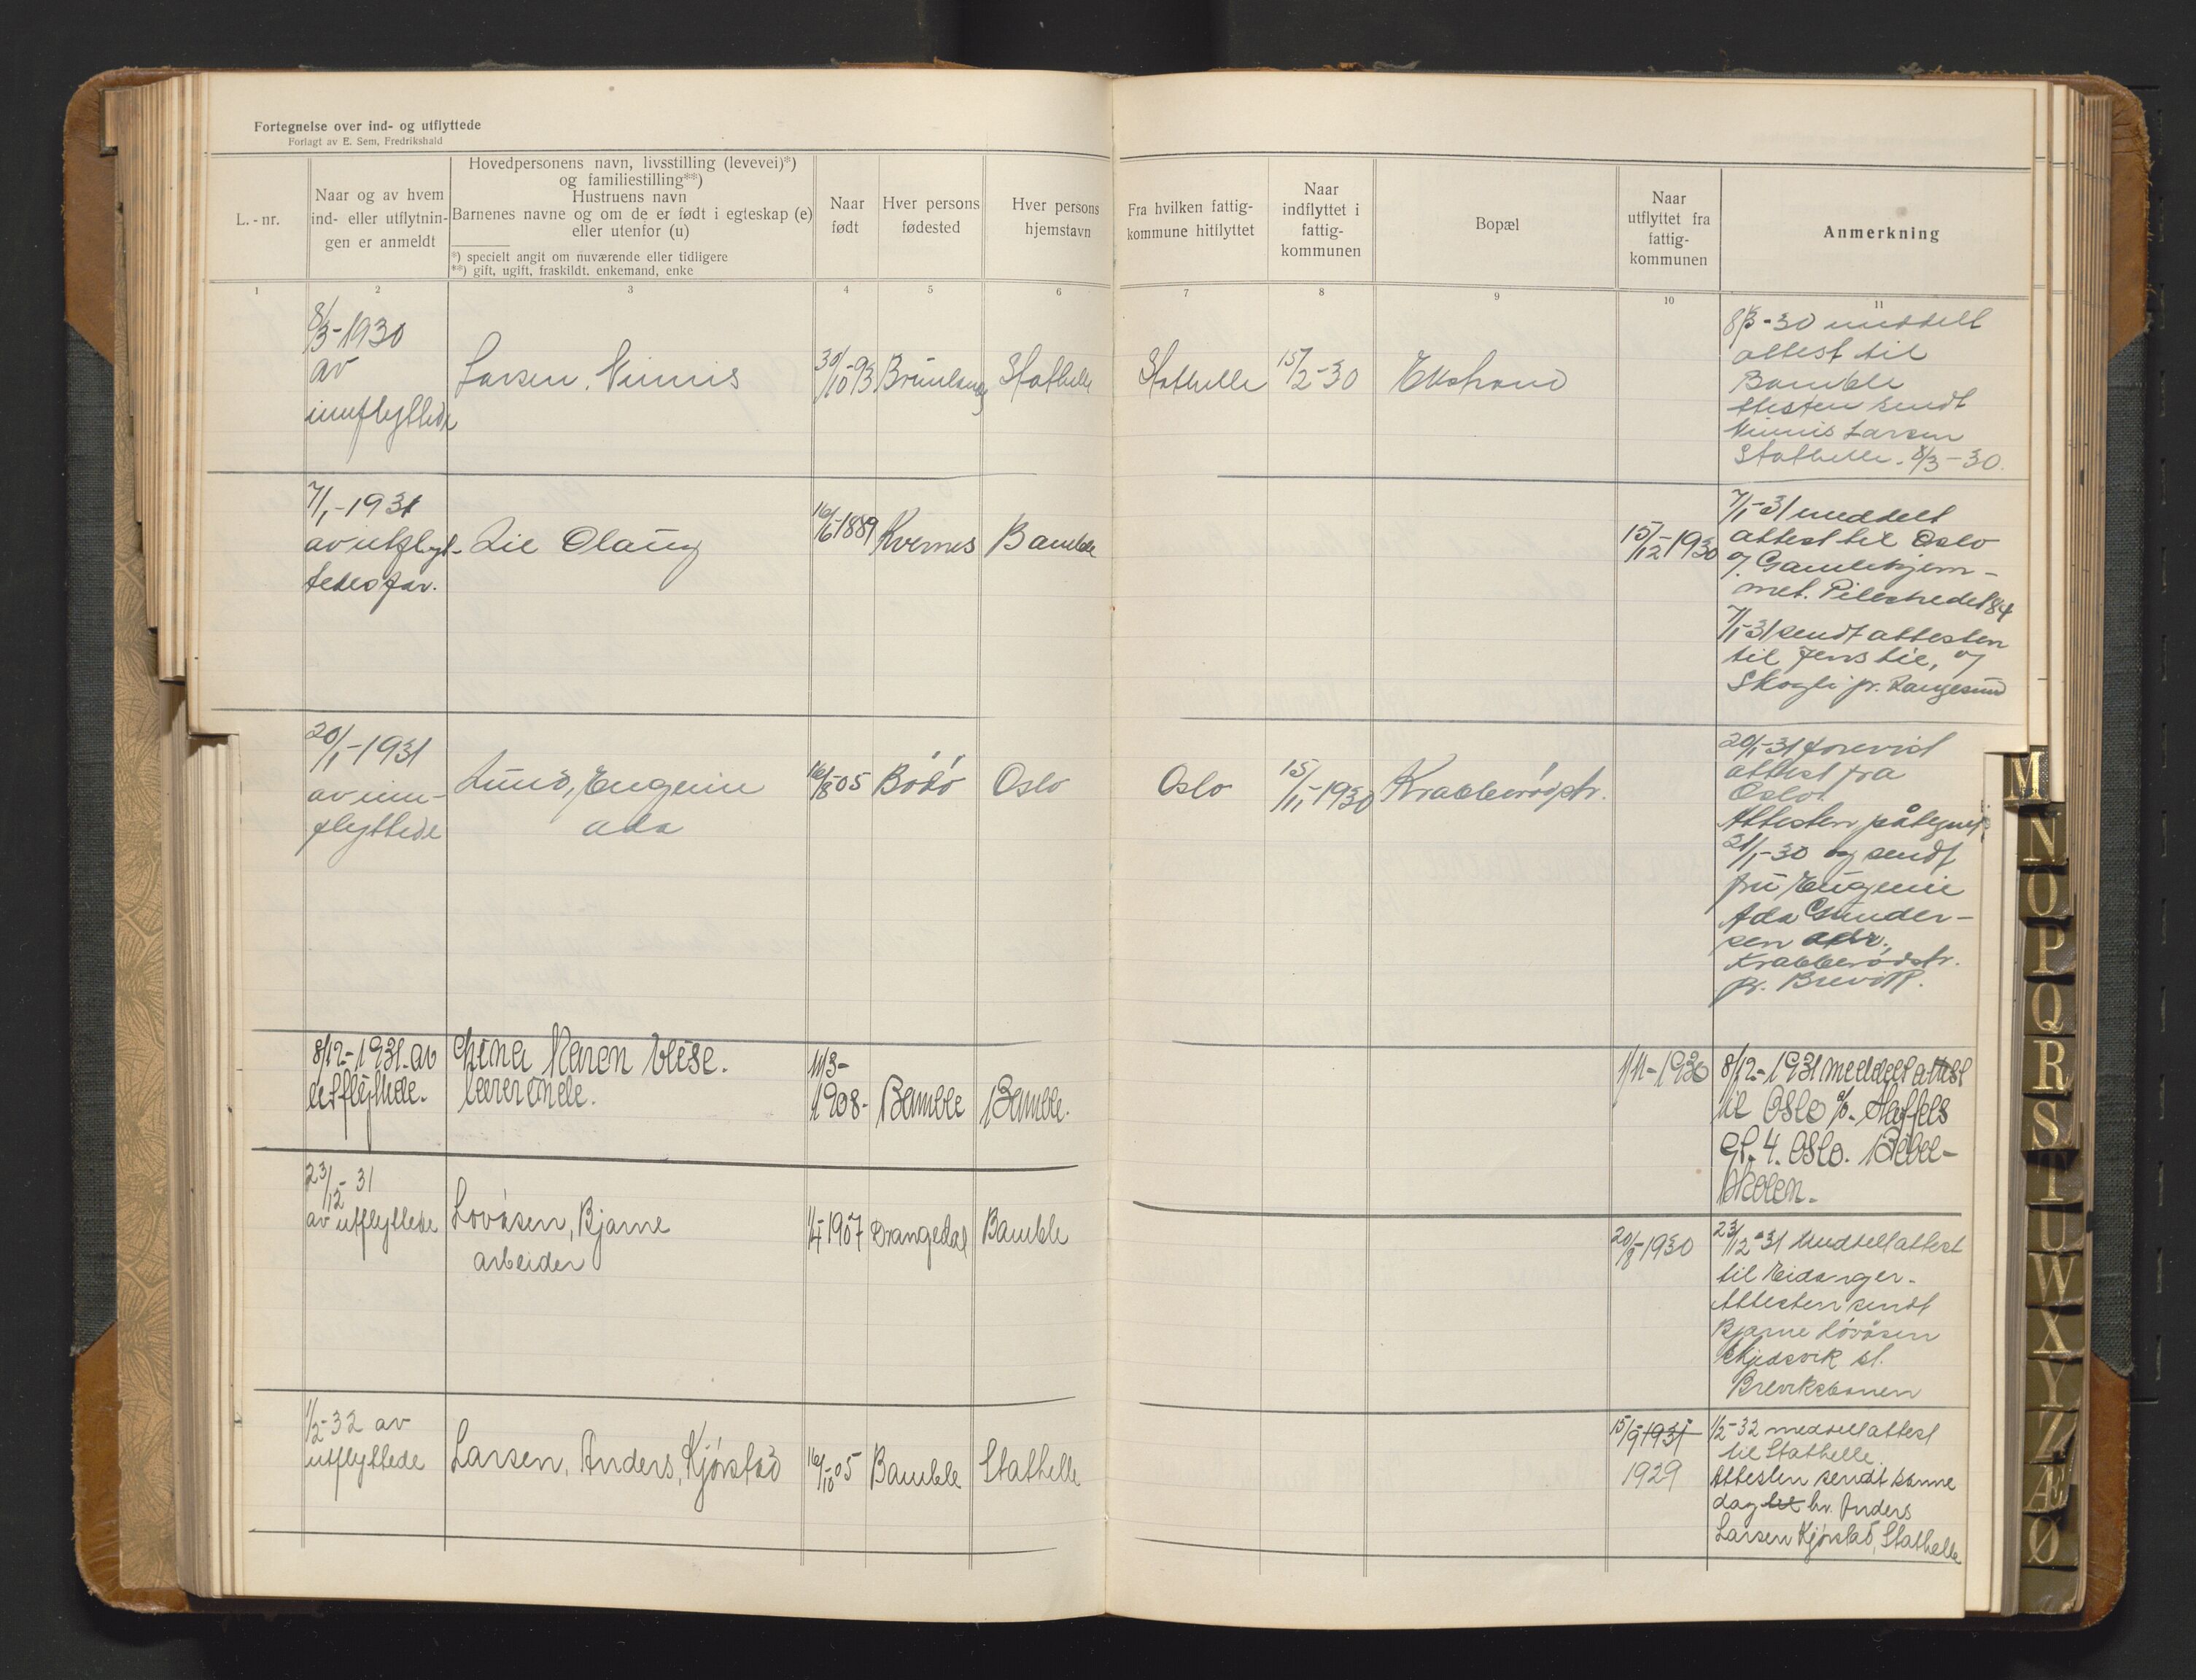 Fortegnelse over ind- og utflyttede
Forlagt av E. Sem, Fredrikshald
L.-nr.
Naar og av hvem
ind- eller utflytnin-
gen er anmeldt
Hovedpersonens navn, livsstilling (levevei)*)
og familiestilling**)
Hustruens navn
Barnenes navne og om de er født i egteskap (e)
eller utenfor (u)
*) specielt angit om nuværende eller tidligere
**) gift, ugift, fraskildt, enkemand, enke
Naar
født
Hver persons
fødested
Hver persons
hjemstavn
Fra hvilken fattig-
kommune hitilyttet
Naar
indflyttet i
fattig-
kommunen
Bopæl
Naar
utflyttet fra
fattig-
kommunen
Anmerkning
1 2 3 4 5 6 7 8 9 10 11
8/3-1930
av
innflyttede
Larsen, Nimis
30/10-93
Brunlanes
Stathelle
Stathelle
15/2-30
Ekstrand
8/3-30 meddelt
attest til
Bamble
Attesten sendt
Nimis Larsen
Stathelle. 8/3-30.
7/1-1931
av utflyt-
tedes far.
Lie Olaug
16/6-1889
Kvernes
Bamble
15/12-1930
7/1-31 meddelt
attest til Oslo
Gamlehjem-
met. Pilestredet 84
7/1-31 sendt attesten
til Jens Lie,
Skogli pr. Langesund
20/1-1931
av inn-
flyttede
Lund, Eugenie
Ada
16/8-05
Bodø
Oslo
Oslo
15/11-1930
Krabberødstr.
20/1-31 forevist
attest fra
Oslo.
Attesten påtegnet
21/1-30 og sendt
fru Eugenie
Ada Gunder-
sen adr.,
Krabberødstr.
pr. Brevik.
8/12-1931. av
utflyttede.
Karen
lærerinde.
11/3-
1908-
Bamble
Bamble.
1/11-1930
8/12-1931 meddelt attest
til Oslo
gt. 4. Oslo. Bibel-
skolen.
23/12-31
av utflyttede
Lovåsen, Bjarne
arbeider
1/4-1907
Drangedal
Bamble
20/8-1930
23/12-31 Meddelt attest
til Eidanger.
Attesten sendt
Bjarne Lövåsen
Skjelsvik st.
Breviksbanen
1/2-32 av
utflyttede
Larsen, Anders, Kjørstad
16/10 05
Bamble
Stathelle
15/9-1931
1929
1/2-32 meddelt attest
til Stathelle.
Attesten sendt samme
dag til hr. Anders
Larsen Kjørstad, Stathelle
M
N
O
P
Q
R
S
T
U
W
X
Y
Z
Æ
Ø